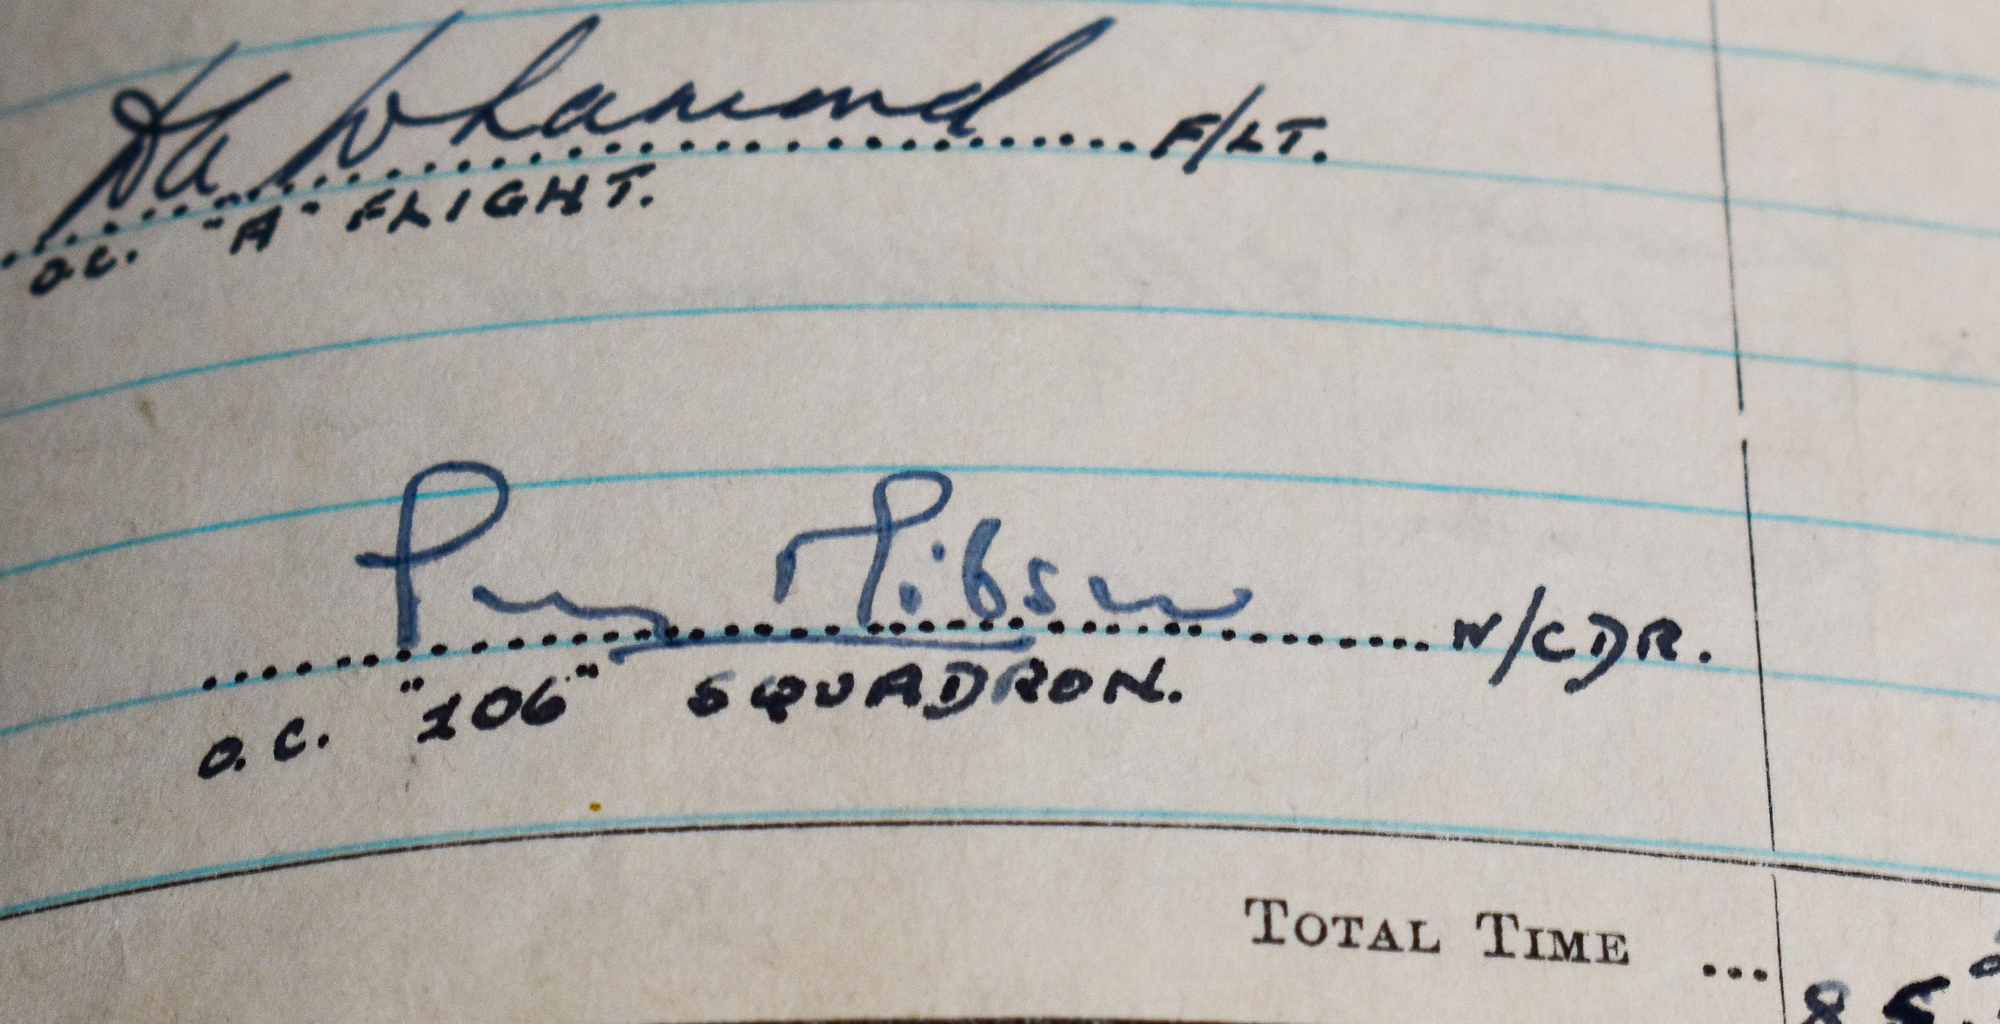 Whamond F/LT.
O.C. "A" FLIGHT.
Guy Gibson W/CDR.
O.C. "106" SQUADRON.
TOTAL TIME ... 85